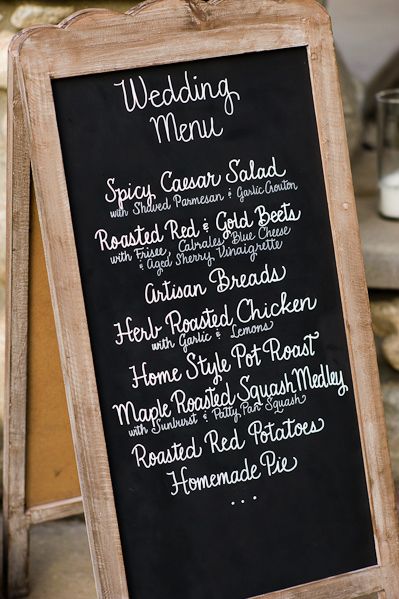 Wedding
Menu
Spicy Caesar Salad
with Shaved Parmesan & Garlic Crouton
Roasted Red & Gold Beets
with Frisee, Cabrales Blue Cheese
& Aged Sherry Vinaigrette
Artisan Breads
Herb Roasted Chicken
with Garlic & Lemons
Home Style Pot Roast
Maple Roasted Squash Medley
with Sunburst & Patty Pan Squash
Roasted Red Potatoes
Homemade Pie
...